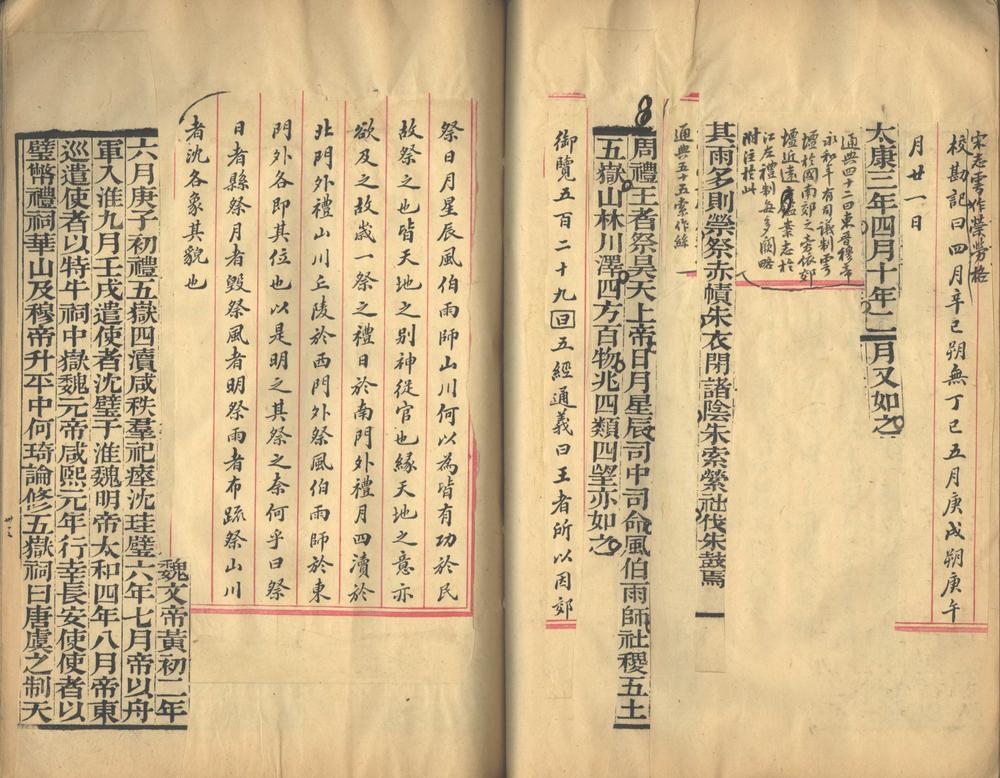 宋志雩作禜勞格
校勘記曰四月辛巳朔無丁巳五月庚戌朔庚午
月廿一日
太康三年四月十年二月又如之
通典四十三曰東晉穆帝
永和年有司議制雩
壇於國南郊之旁依郊
壇近遠案志於
江左禮制每多闕略
附注於此
其雨多則禜祭赤幘朱衣閉諸陰朱索縈社伐朱鼓焉
通典五十五索作絲
周禮王者祭昊天上帝日月星辰司中司命風伯雨師社稷五土
五嶽山林川澤四方百物兆四類四望亦如之
御覽五百二十九回五經通義曰王者所以因郊
祭日月星辰風伯雨師山川何以為皆有功於民
故祭之也皆天地之別神從官也緣天地之意亦
欲及之故歲一祭之禮日於南門外禮月四瀆於
北門外禮山川丘陵於西門外祭風伯雨師於東
門外各即其位也以是明之其祭之奈何乎曰祭
日者縣祭月者毀祭風者明祭雨者布疏祭山川
者沈各象其貌也
魏文帝黃初二年
六月庚子初禮五嶽四瀆咸秩羣祀瘞沈珪璧六年七月帝以舟
軍入淮九月壬戌遣使者沈璧于淮魏明帝太和四年八月帝東
巡遣使者以特牛祠中嶽魏元帝咸熙元年行幸長安使使者以
璧幣禮祠華山及穆帝升平中何琦論修五嶽祠曰唐虞之制天